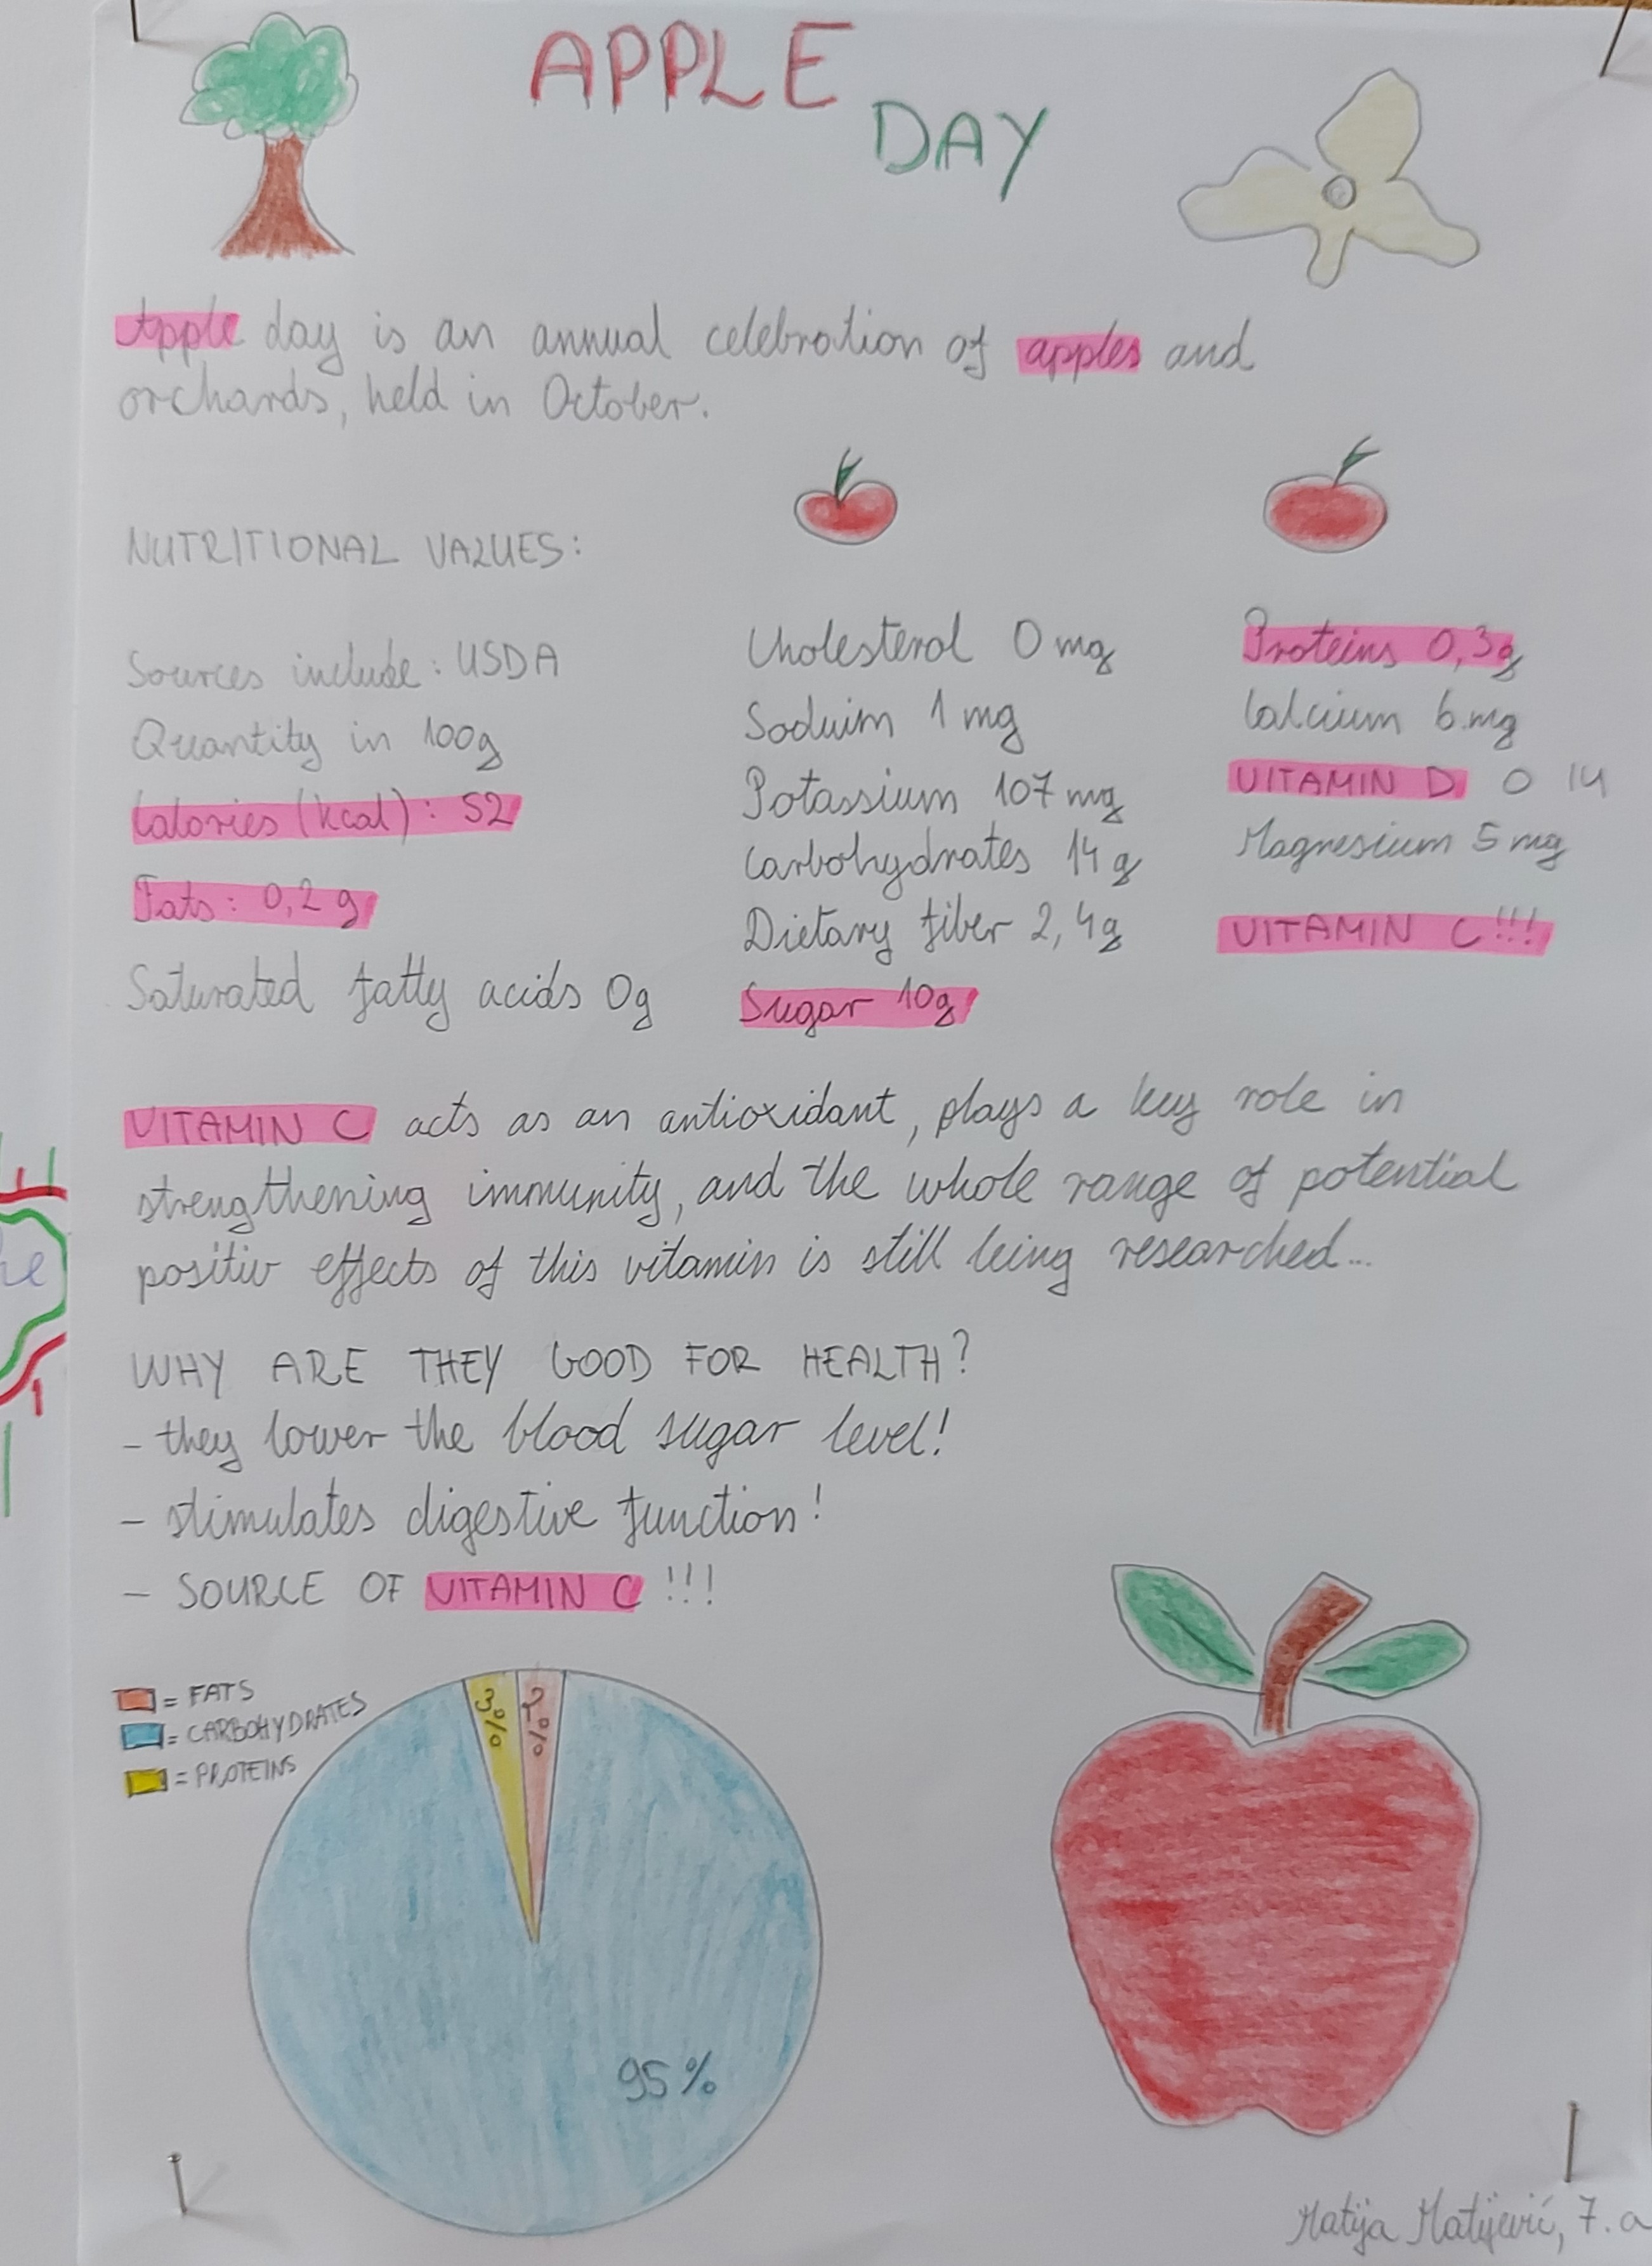 APPLE
DAY
Apple day is an annual celebration of apples and
orchards, held in October.
NUTRITIONAL VALUES:
Sources include: USDA
Quantity in 100g
Calories (kcal): 52
Fats: 0,2 g
Saturated fatty acids 0g
Cholesterol 0 mg
Soduim 1 mg
Potassium 107 mg
Carbohydrates 14 g
Dietary fiber 2,4g
Sugar 10g
Proteins 0,3g
Calcium 6 mg
VITAMIN D 0 IU
Magnesium 5 mg
VITAMIN C!!!
VITAMIN C acts as an antioxidant, plays a key role in
strengthening immunity, and the whole range of potential
positiv effects of this vitamin is still being researched...
WHY ARE THEY GOOD FOR HEALTH?
- they lower the blood sugar level!
- stimulates digestive function!
- SOURCE OF VITAMIN C !!!
= FATS
= CARBOHYDRATES
= PROTEINS
3%
2%
95%
Matija Matijević, 7.a